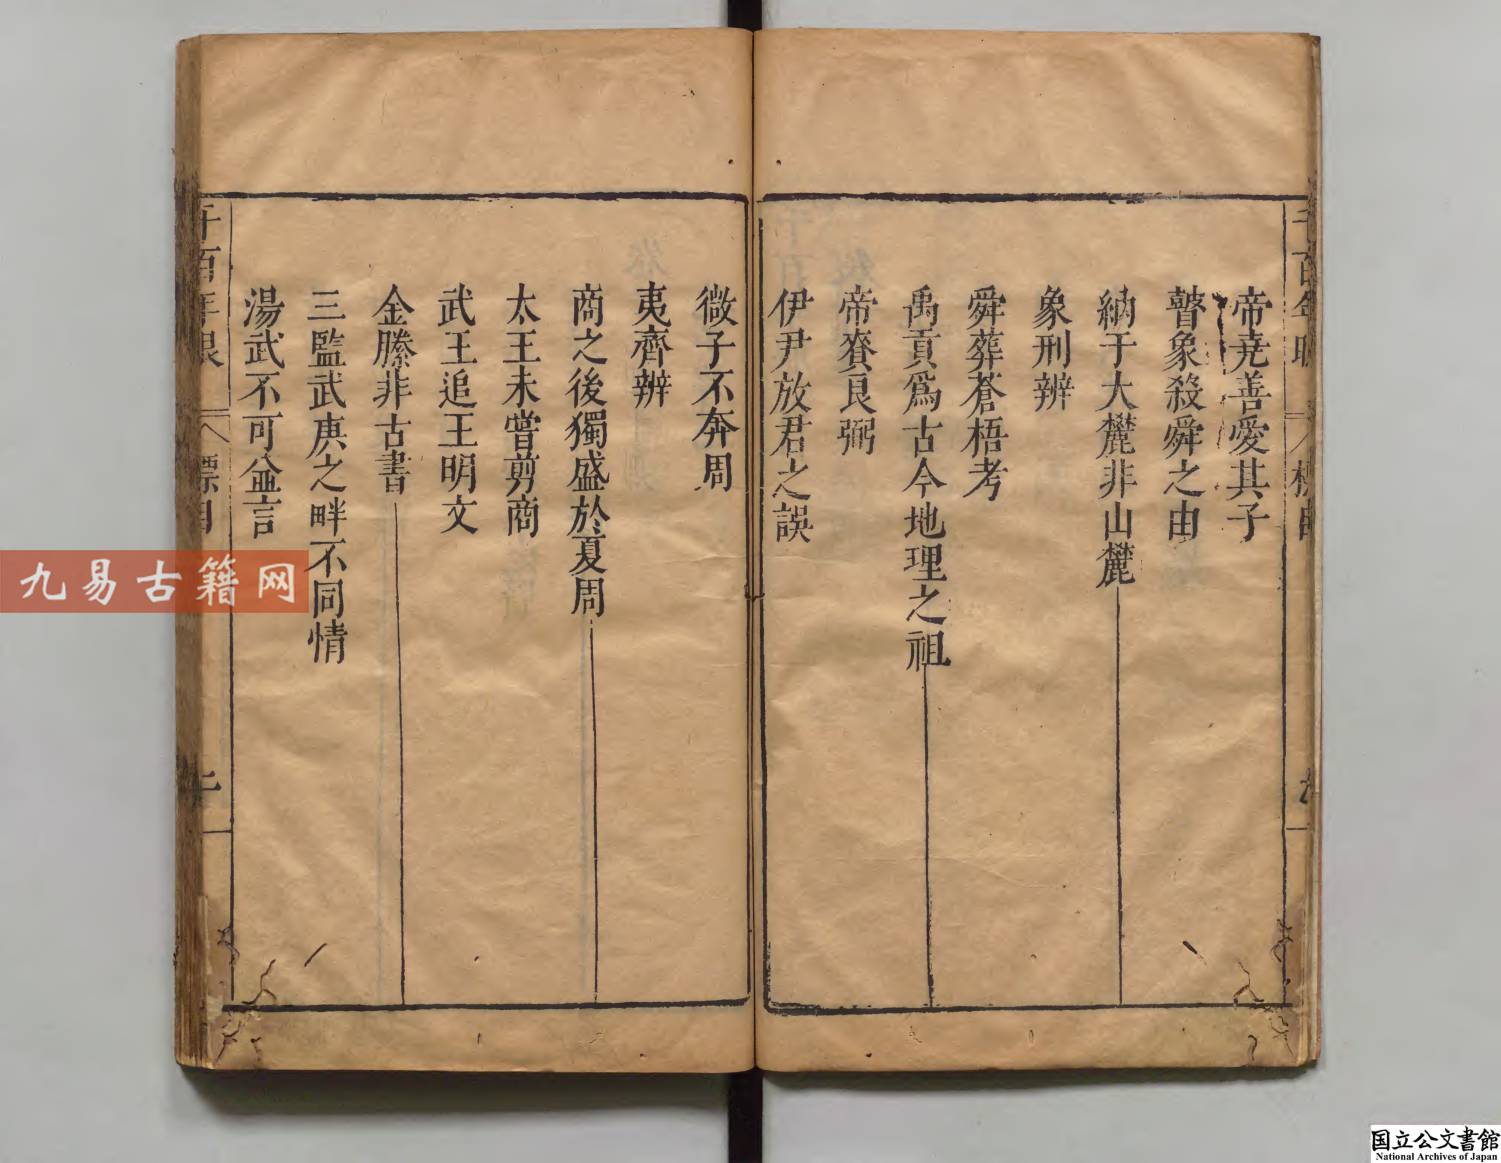 帝堯善愛其子
瞽象殺舜之由
納于大麓非山麓
象刑辨
舜葬蒼梧考
禹貢爲古今地理之祖
帝賚良弼
伊尹放君之誤
微子不奔周
夷齊辨
商之後獨盛於夏周
太王未嘗剪商
武王追王明文
金縢非古書
三監武庚之畔不同情
湯武不可並言
千百年眼
標目
九易古籍网
国立公文書館
National Archives of Japan